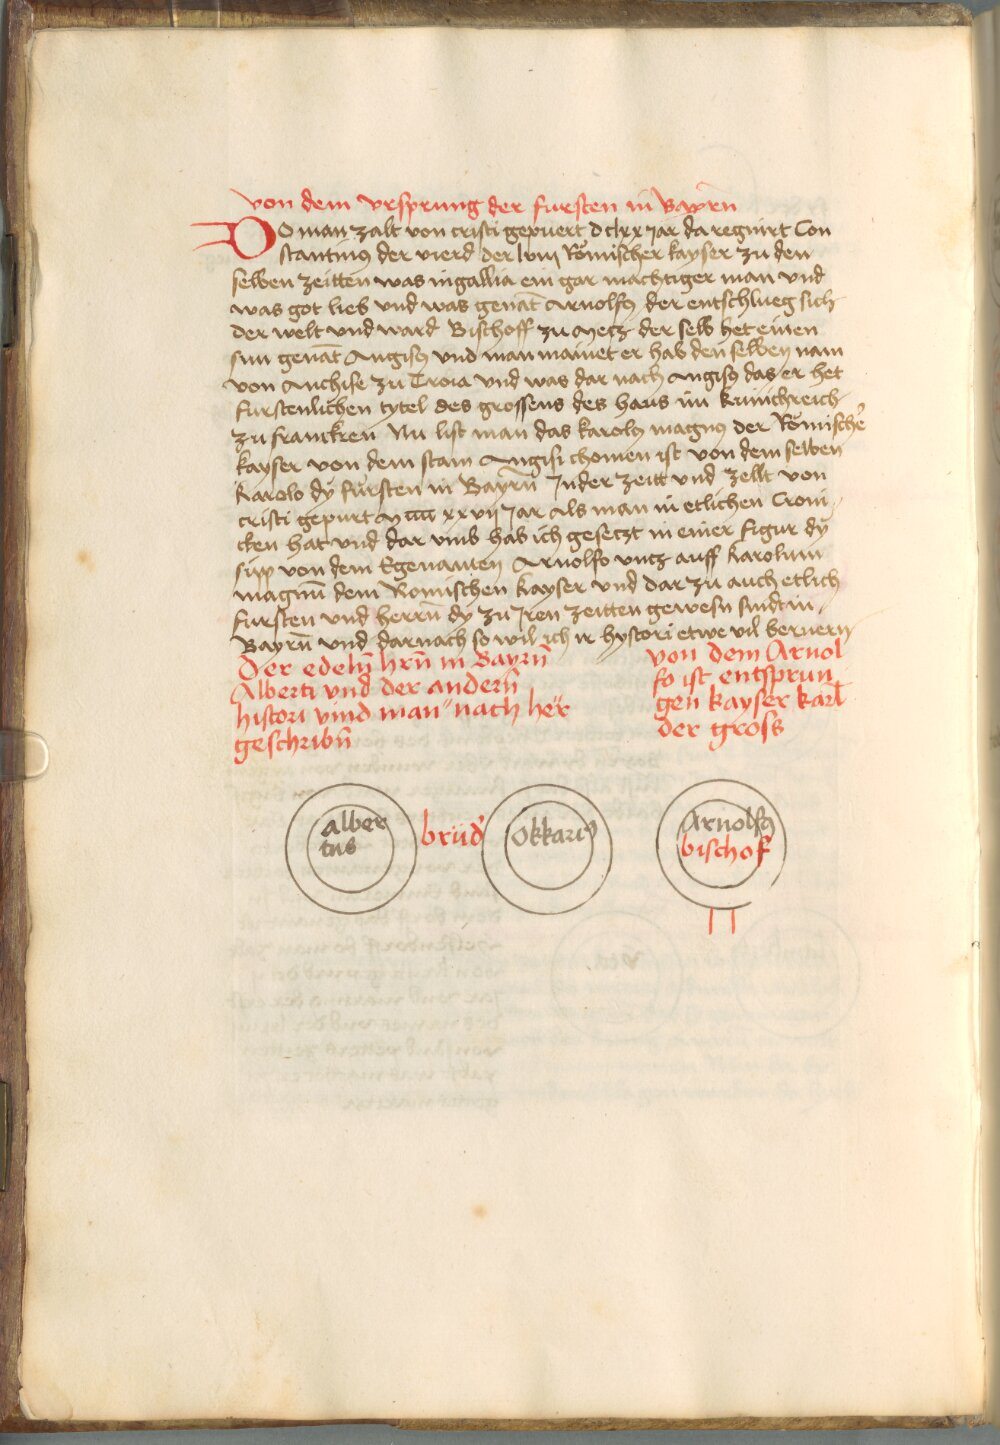 Von dem ursprung der fursten in Bayrn̄
DO man zalt von cristi gepuert dclxx jar da regnirt Con
stantinꝰ der vierd der lviij Römischer kayser zu den
selben zeitten was in gallia ein gar mächtiger man und
was got lieb und was genāt Arnolfꝰ der entschlueg sich
der welt und ward Bischoff zu Metz der selb het einen
sun genāt Angisꝰ und man mainet er hab den selben nam
von Anchise zu Troia und was dar nach Angisꝰ das er het
furstenlichen tytel des grossens des haus im kunichreich
zu franckren Nu list man das karolꝰ magnꝰ der Römische
kayser von dem stam Angisi chomen ist von dem selben
karolo dy fursten in Bayrn̄ In der zeitt und zellt von
cristi gepurt Mcccc xxvij jar als man in etlichen Croni
cken hat und dar umb hab ich gesetzt in einer figur dy
sipp von dem Egenanten Arnolfo untz auff karolum
magnū dem Romischen kayser und dar zu auch etlich
fursten und herrn̄ dy zu jren zeitten gewesn sindt in
Bayrn̄ und darnach so wil ich ir hystori etwe vil berueren
Der edeln̄ hrn̄ in Bayrn̄
Alberti und der andern̄
histori vind man nach her
geschribn̄
von dem Arnol
fo ist entsprun
gen kayser karl
der gross
alber
tus
brüd'
Okkariꝰ
Arnolfꝰ
bischof